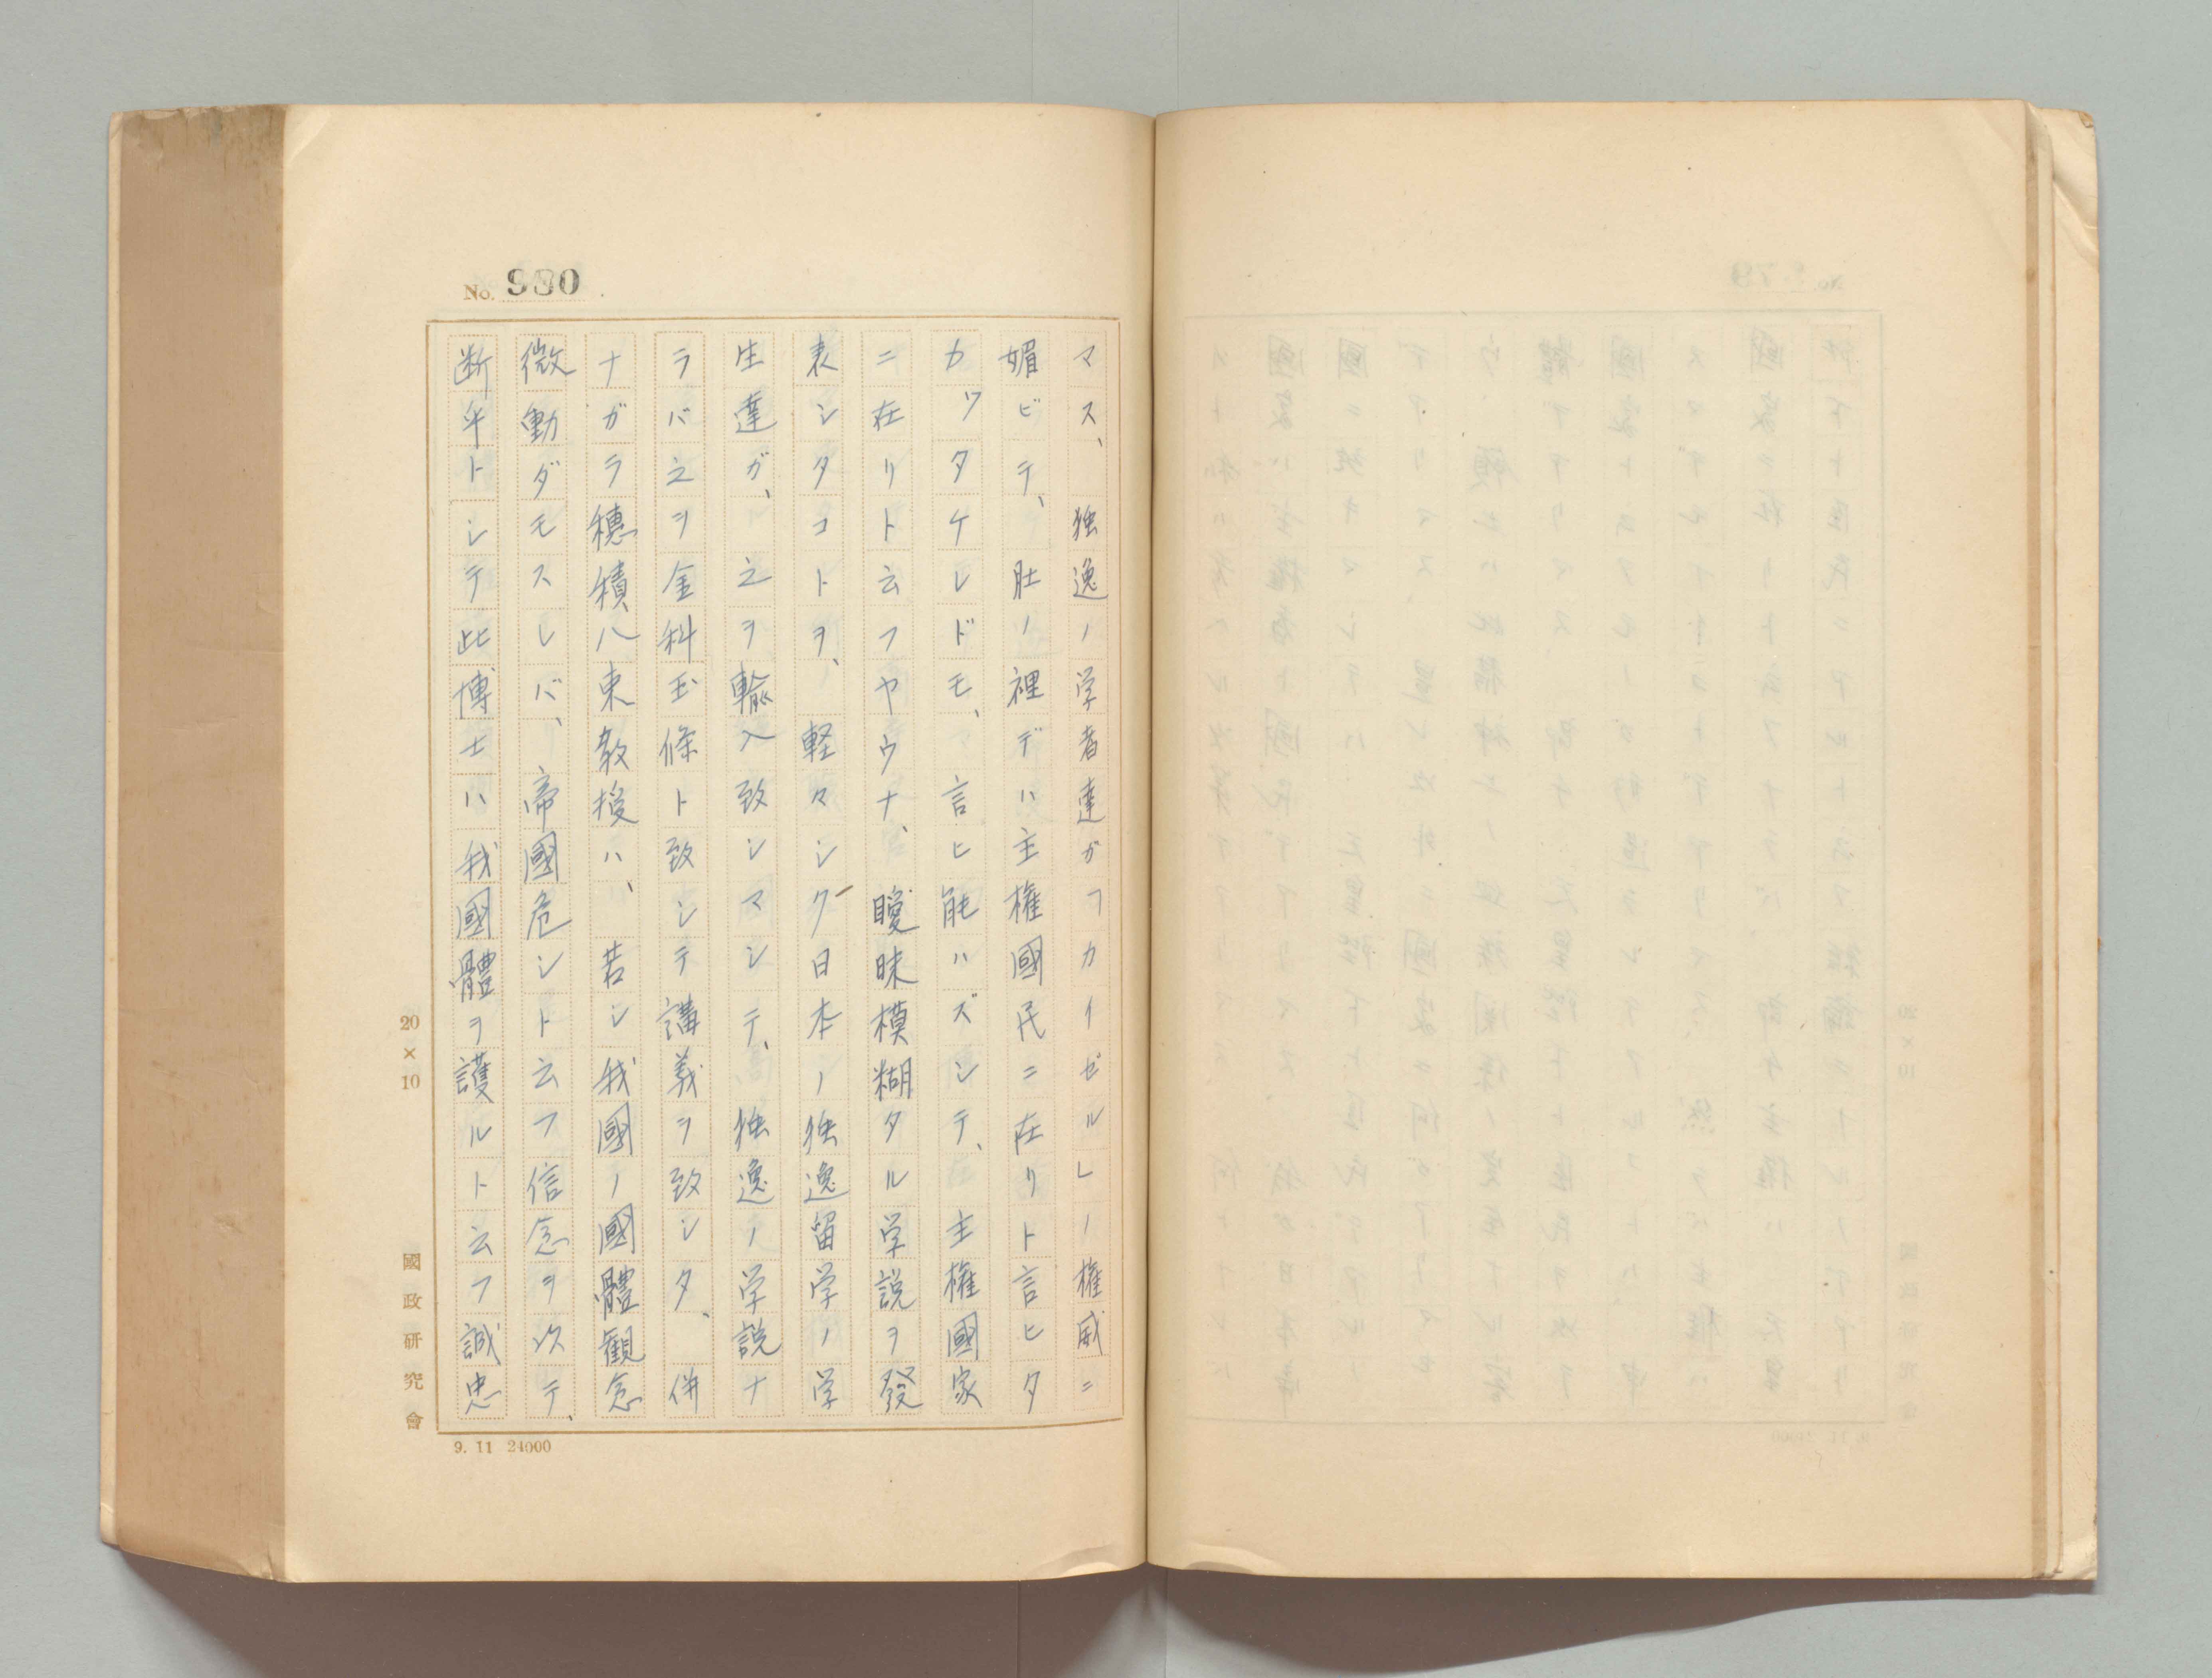 No. 980
マス、独逸ノ学者達ガフカイゼルレノ権威ニ
媚ビテ、肚ノ裡デハ主権國民ニ在リト言ヒタ
カツタケレドモ、言ヒ能ハズシテ、主権國家
ニ在リト云フヤウナ、曖昧模糊タル学説ヲ發
表シタコトヲ、軽々シク日本ノ独逸留学ノ学
生達ガ、之ヲ輸入致シマシテ、独逸ノ学説ナ
ラバ之ヲ金科玉條ト致シテ講義ヲ致シタ、併
ナガラ穂積八束教授ハ、若シ我國ノ國體観念
微動ダモスレバ、帝國危シト云フ信念ヲ以テ、
断乎トシテ此博士ハ我國體ヲ護ルト云フ誠忠
20×10
國政研究會
9. 11 24000